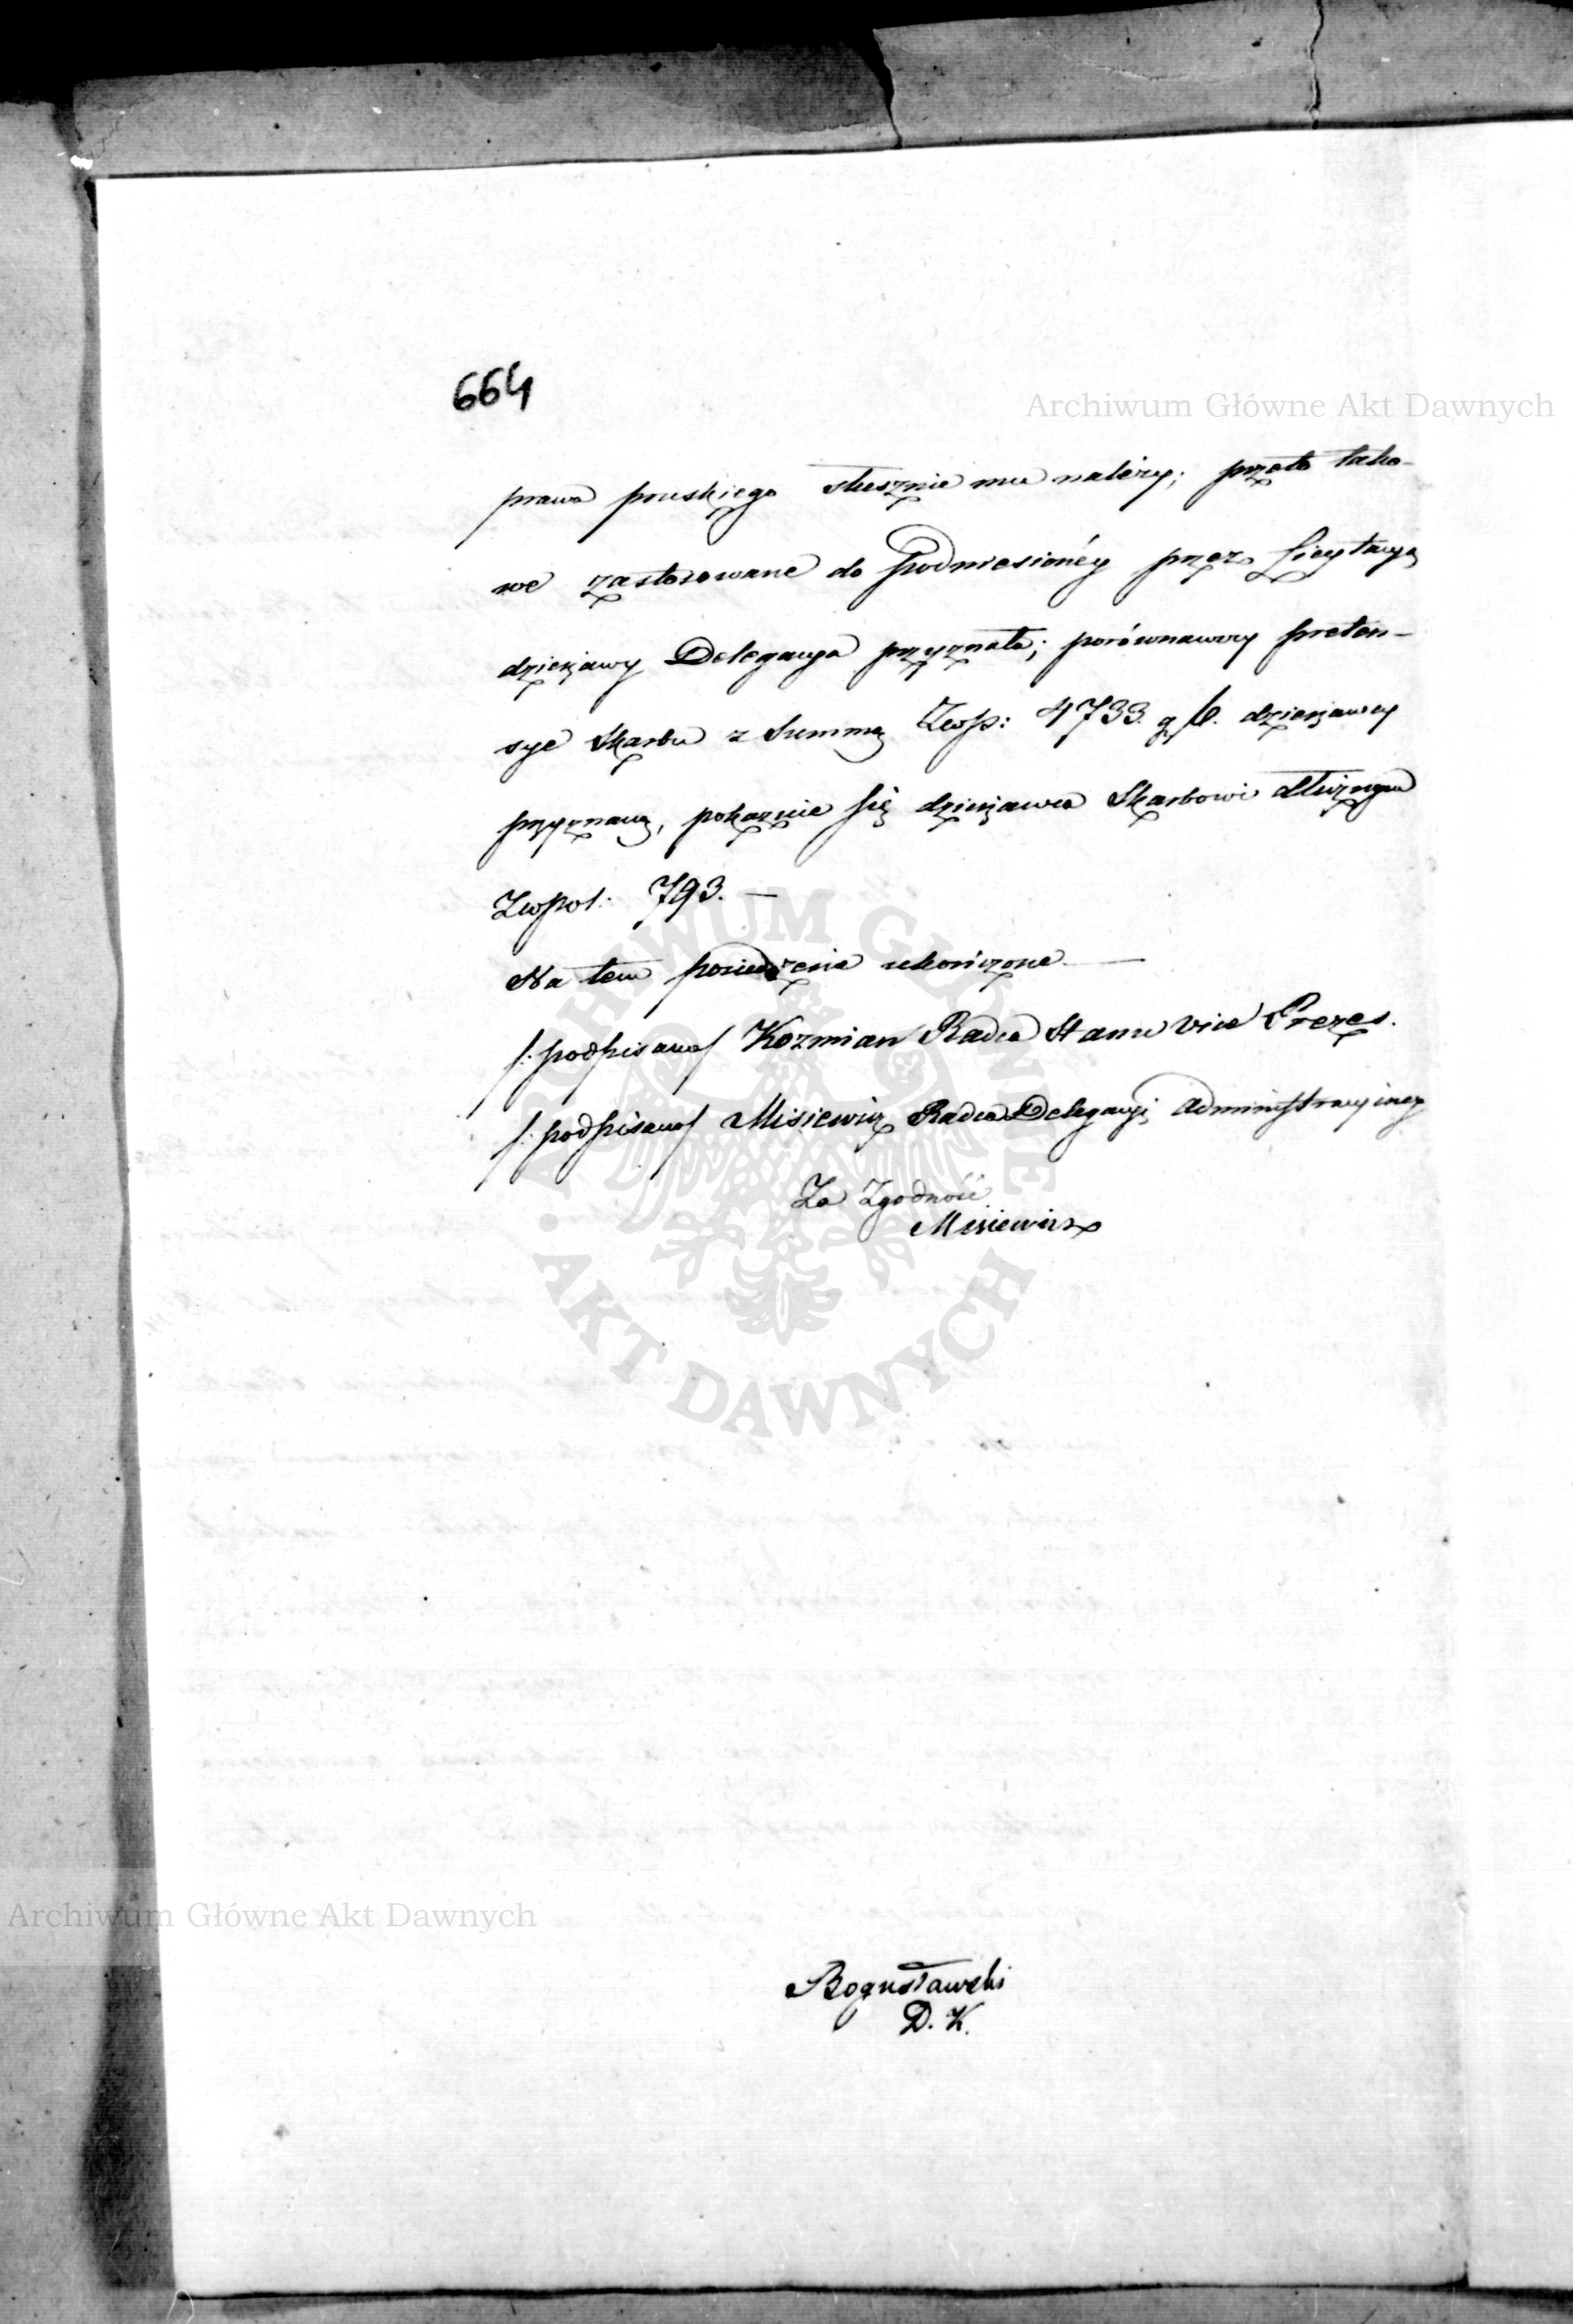 664
Archiwum Główne Akt Dawnych
prawa pruskiego słusznie mu należy; przeto tako-
we zastosowane do podniesionéy przez Licytacyą
dzierżawy Delegacya przyznała; porównawszy preten-
sye Skarbu z Summą Złwp: 4733. g dzierżawcy
przyznaną, pokazuie się dzierżawca Skarbowi dłużnym
Złwpol: 793. —
Na tem posiedzenie ukończone —
/: podpisano/ Kozmian Radca Stanu Vice Prezes.
/: podpisano/ Misiewicz Radca Delegacyi Administracyiney
Za Zgodność
Misiewicz
ARCHIWUM GŁÓWNE
• AKT DAWNYCH
Archiwum Główne Akt Dawnych
Bogusławski
D. K.